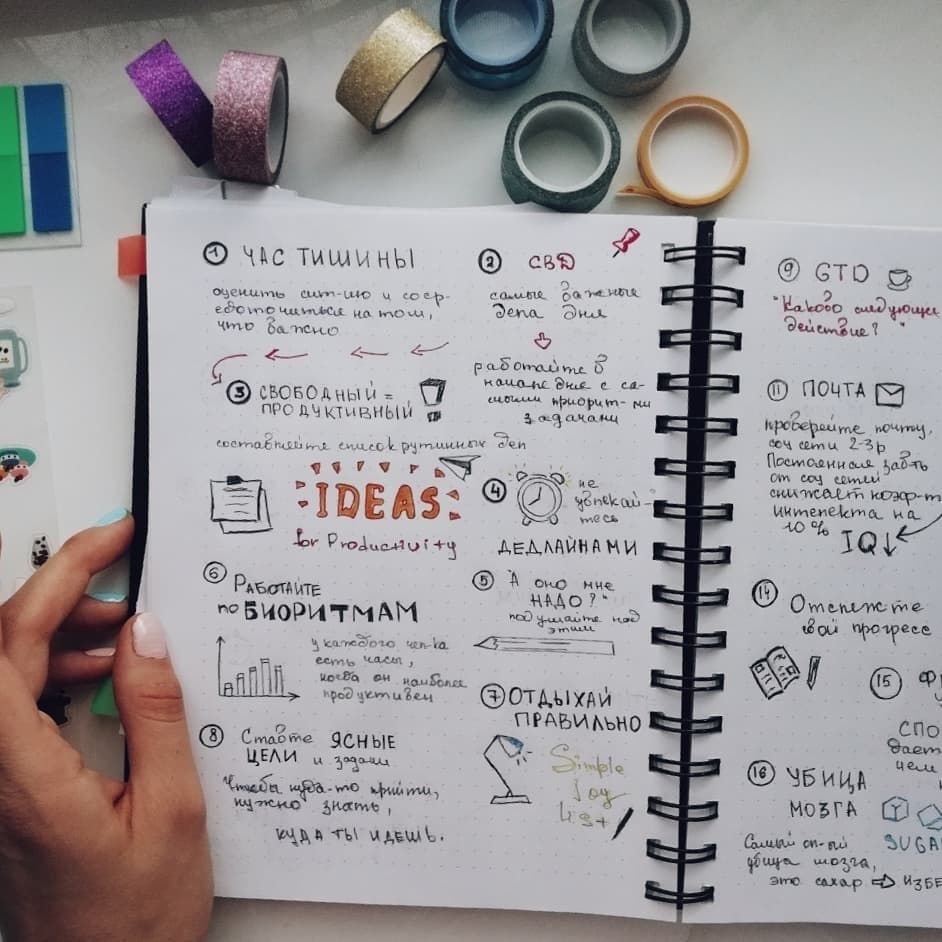 1 ЧАС ТИШИНЫ
оценить сит-ию и соср-
едоточиться на том,
что важно
2 СВД
самые важные
дела дня
работайте в
начале дня с са-
мыми приорит-ми
задачами
3 СВОБОДНЫЙ =
ПРОДУКТИВНЫЙ
составляйте список рутинных дел
IDEAS
for Productivity
4 не
увлекай-
тесь
ДЕДЛАЙНАМИ
5 "А оно мне
НАДО?"
подумайте над
этим
6 РАБОТАЙТЕ
по БИОРИТМАМ
у каждого чел-ка
есть часы,
когда он наиболее
продуктивен
7 ОТДЫХАЙ
ПРАВИЛЬНО
Simple
Joy
list
8 Ставьте ЯСНЫЕ
ЦЕЛИ и задачи
Чтобы куда-то прийти,
нужно знать,
КУДА ТЫ ИДЕШЬ.
9 GTD
"Каково следующее
действие?"
11 ПОЧТА
проверяйте почту,
соц сети 2-3р
Постоянная
от соц сетей
снижает коэф-т
интелекта на
10 %
IQ
14 Отслежте
свой прогресс
15
СПО
дает
чем
16 УБИЦА
МОЗГА
SUGA
Самый
убица мозга,
это сахар ⇨ ИЗБЕ